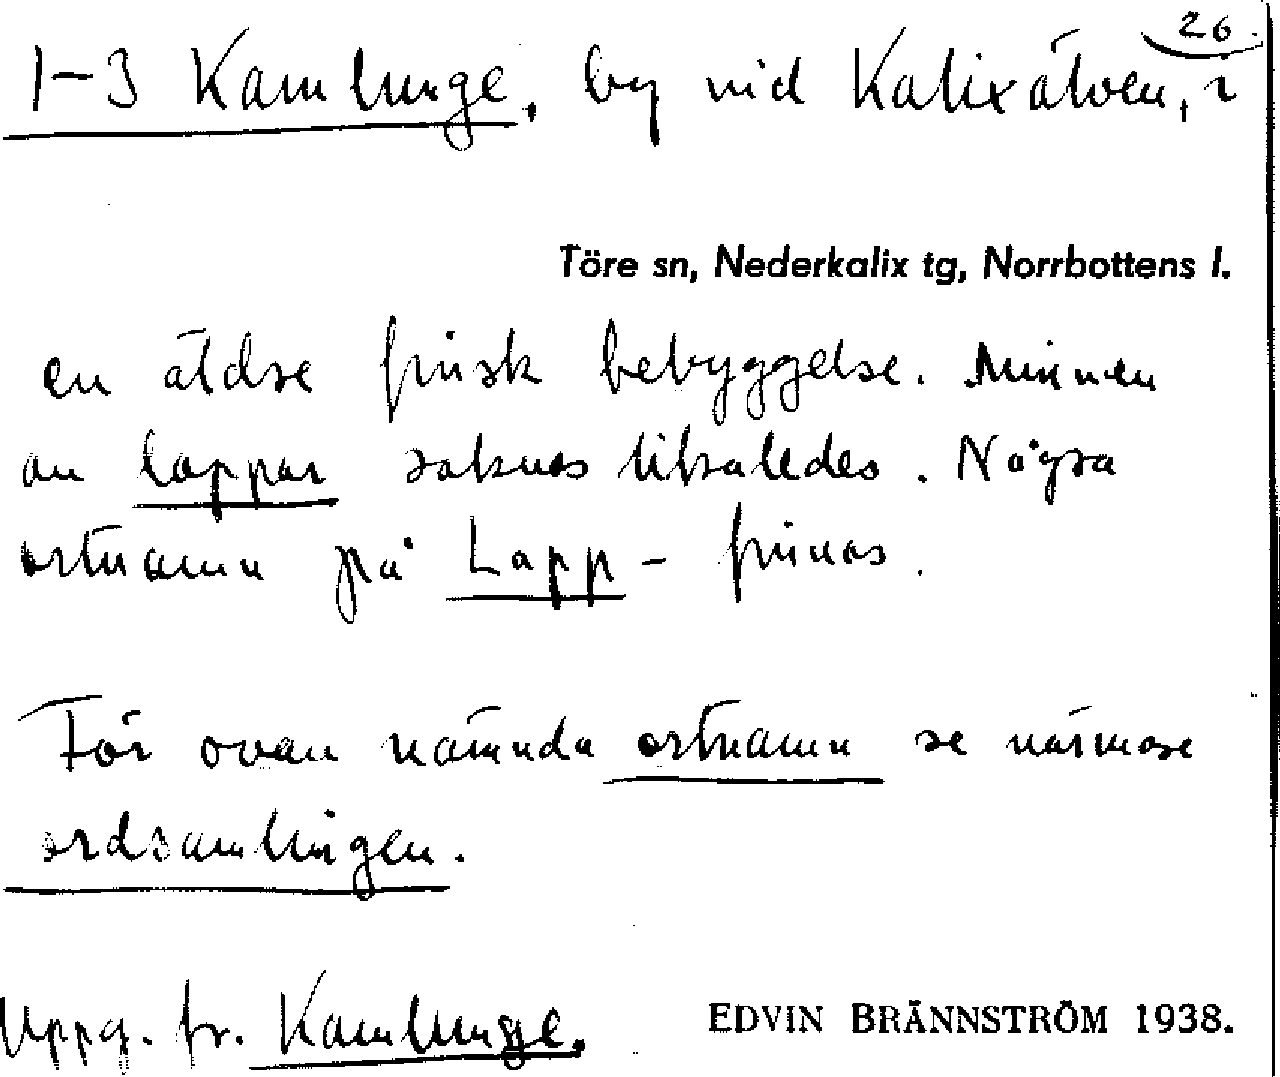 26.
1-3 Kamlunge, by vid Kalixälven, i
Töre sn, Nederkalix tg, Norrbottens l.
en äldre finsk bebyggelse. Minnen
av lappar saknas likaledes. Några
ortnamn på Lapp- finnas.
För ovan nämnda ortnamn se närmare
ordsamlingen.
Uppg. fr. Kamlunge.
EDVIN BRÄNNSTRÖM 1938.